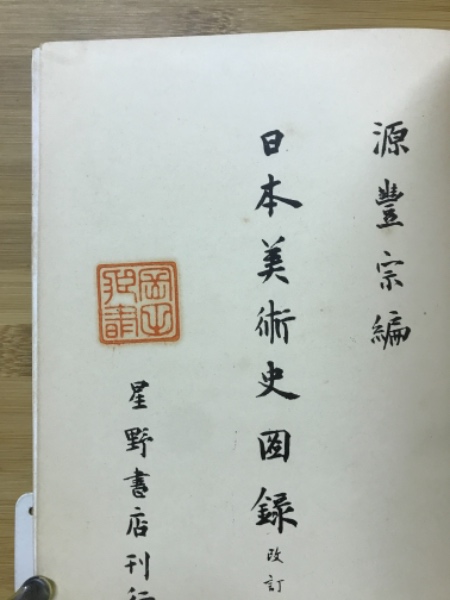 源豐宗編
日本美術史圖録 改訂
星野書店刊行